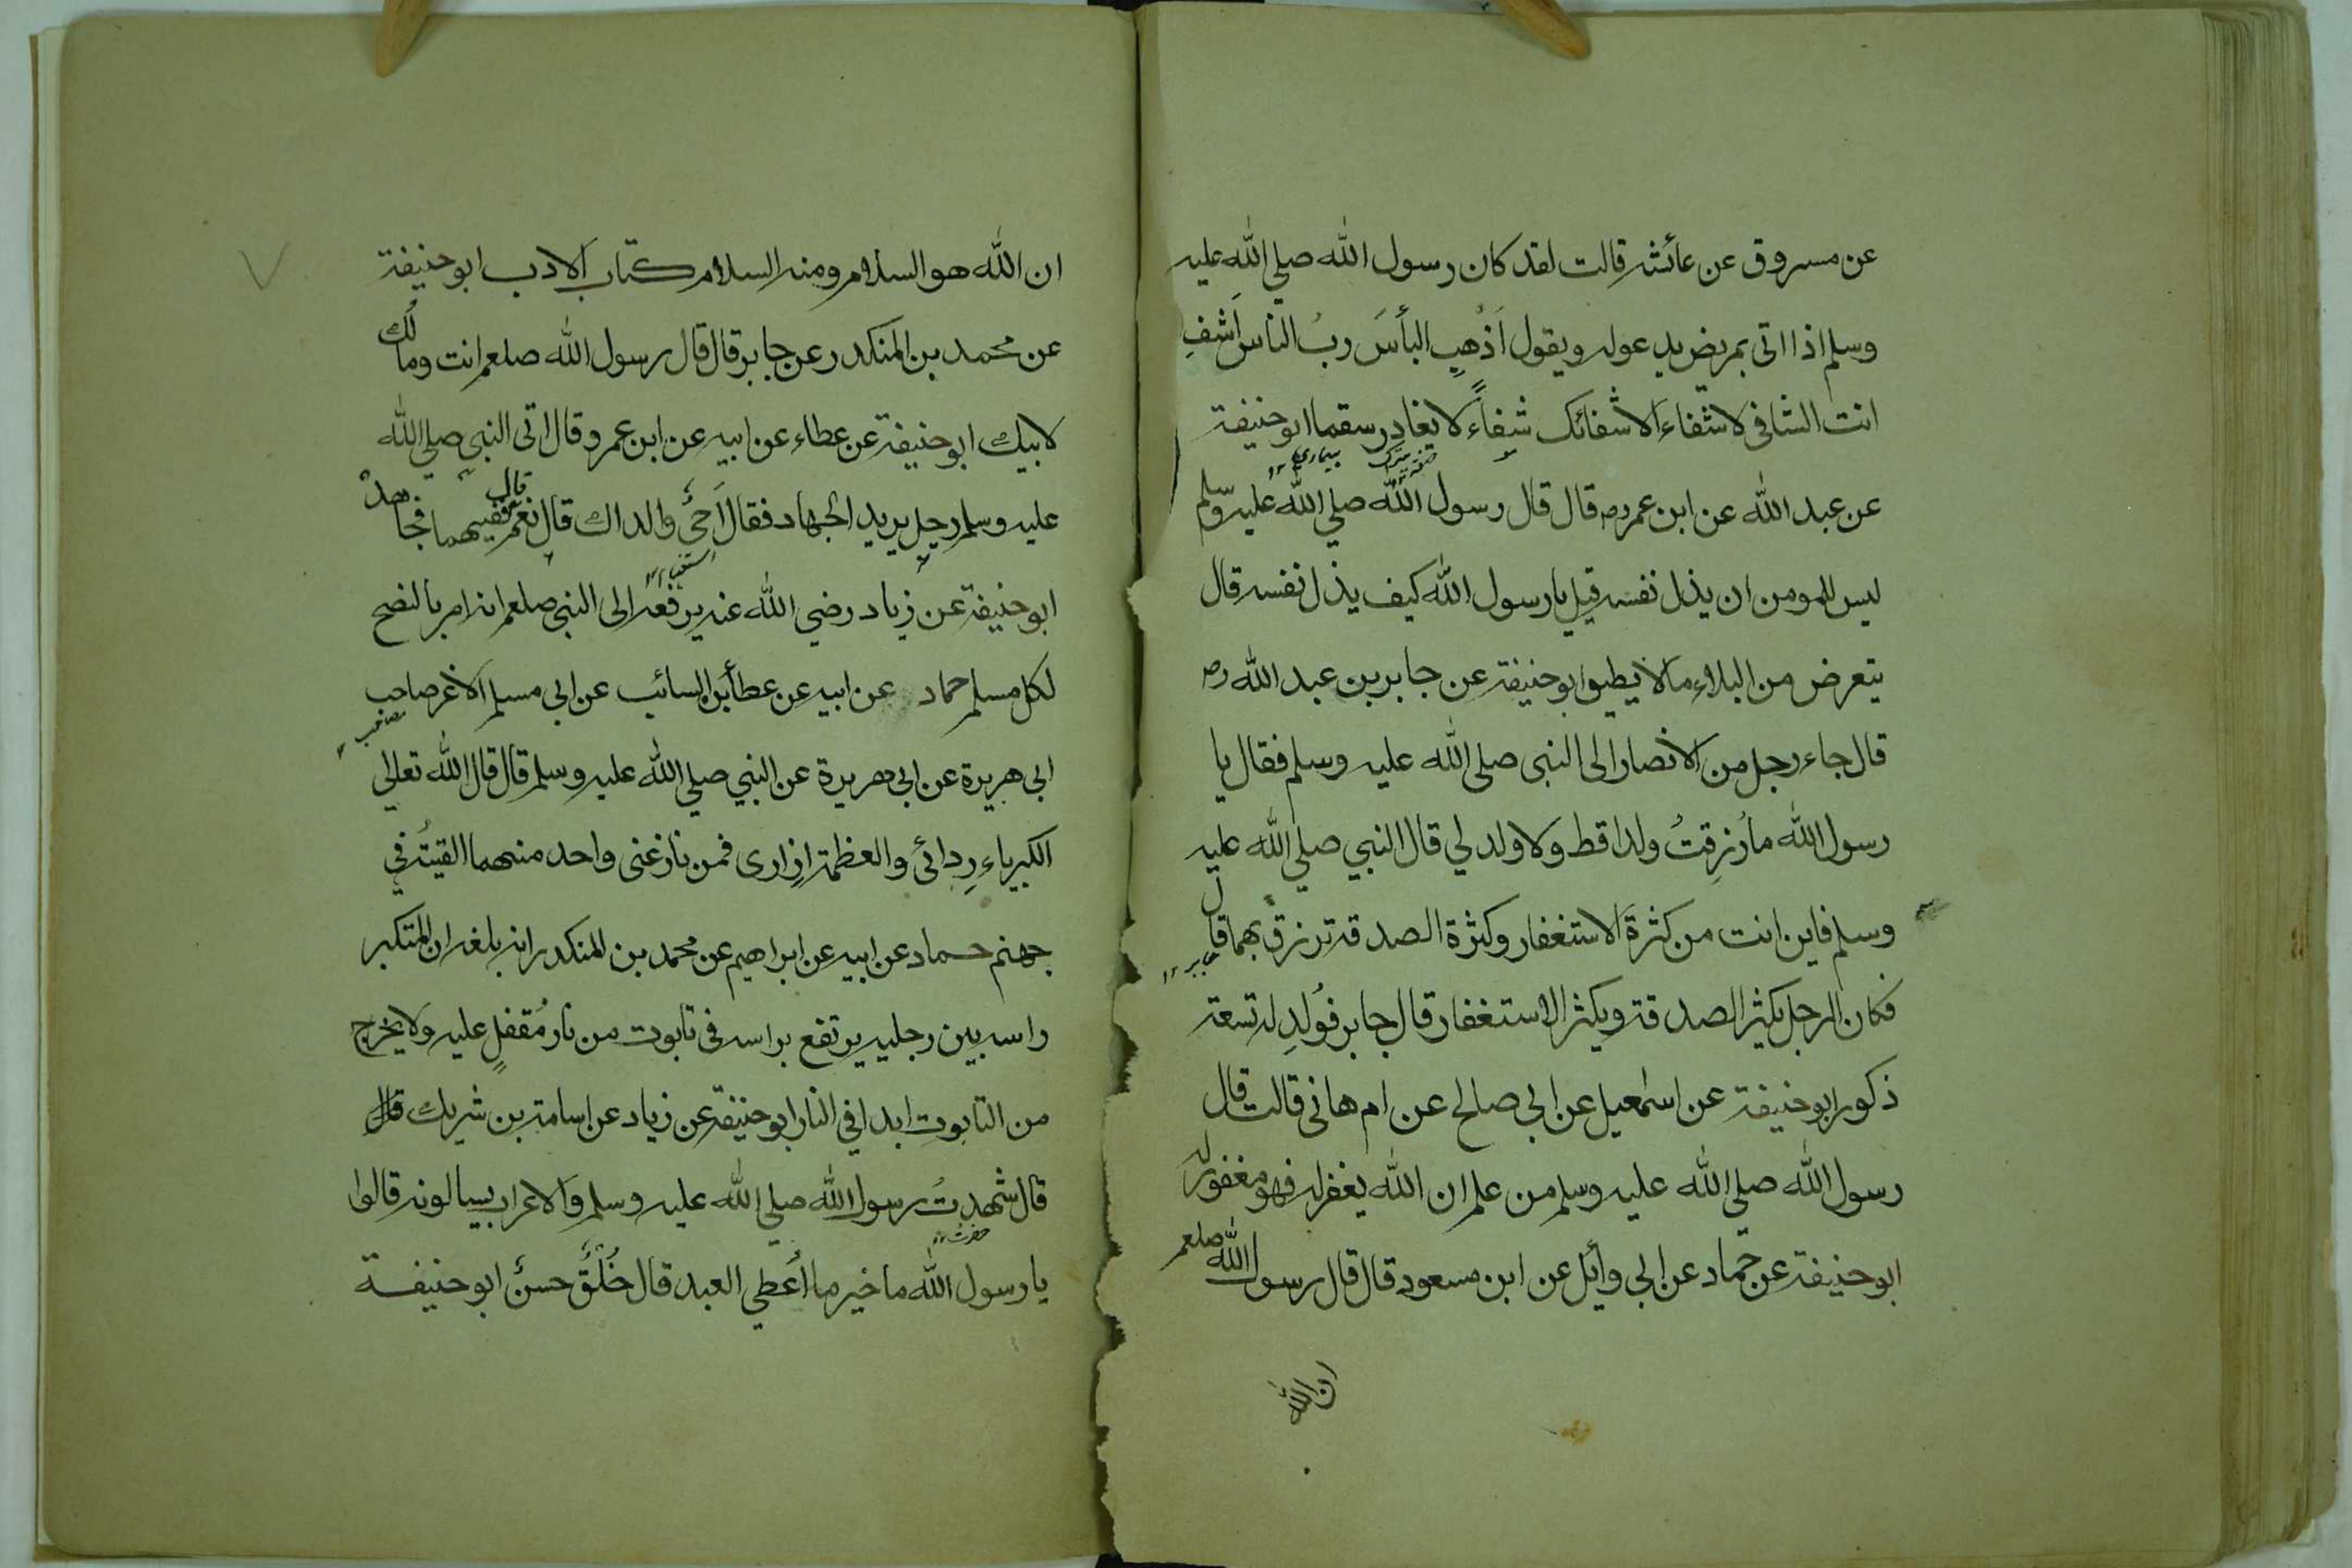 عن مسروق عن عائشه قالت لقد كان رسول الله صلي الله عليه
وسلم اذا اتى بمريض يدعوله ويقول اَذْهِبِ البأسَ ربُ الناس اَشفِ
انت الشافى لا شفاء الا شفائك شفاءً لا يغادِر سقما ابو حنيفة
بيماري ١٢
عن عبد الله عن ابن عمر رض قال قال رسول الله صلي الله عليه وسلم
ليس للمومن ان يذل نفسه قيل يا رسول الله كيف يذل نفسه قال
يتعرض من البلاء ما لا يطيق ابو حنيفة عن جابر بن عبد الله رض
قال جاء رجل من الانصار الى النبى صلى الله عليه وسلم فقال يا
رسول الله ما رُزِقتُ ولدا قط ولا ولد لي قال النبي صلي الله عليه
وسلم فاين انت من كثرة الاستغفار وكثرة الصدقة ترزق بهما قال
جابر ١٢
فكان الرجل يكثر الصدقة ويكثر الاستغفار قال جابر فوُلِدِ له تسعة
ذكور ابو حنيفة عن اسمعيل عن ابي صالح عن ام هانى قالت قال
رسول الله صلي الله عليه وسلم من علم ان الله يغفر له فهو مغفور له
ابو حنيفة عن حماد عن ابي وأيل عن ابن مسعود قال قال رسول الله صلعم
ان الله
ان الله هو السلام ومنه السلام كتاب الادب ابو حنيفة
عن محمد بن المنكدر عن جابر قال قال رسول الله صلعم انت ومالُك
لابيك ابو حنيفة عن عطاء عن ابيه عن ابن عمرو قال اتى النبى صلي الله
عليه وسلم رجل يريد الجهاد فقال اَحيٌّ والداك قال نعم قال ففيهما فجاهد
ابو حنيفة عن زياد رضي الله عنه يرفعه الى النبى صلعم انه امر بالنصح
لكل مسلم حماد عن ابيه عن عطأ بن السائب عن ابي مسلم الاغر صاحب
ابي هريرة عن ابي هريرة عن النبي صلي الله عليه وسلم قال قال الله تعالي
الكبرياء رِدائى والعظمة اِزارى فمن نازعنى واحد منهما القيتُه في
جهنم حماد عن ابيه عن ابراهيم عن محمد بن المنكدر انه بلغه ان المتكبر
راسه بين رجليه يرتفع براسه فى تابوت من نار مُقفلٍ عليه ولا يخرج
من التابوت ابدا في النار ابو حنيفة عن زياد عن اسامة بن شريك قال
قال شهدتُ رسول الله صلي الله عليه وسلم والاعراب يسالونه قالوا
حضرت ١٢
يا رسول الله ما خير ما اُعطي العبد قال خُلُقٌ حسنٌ ابو حنيفة